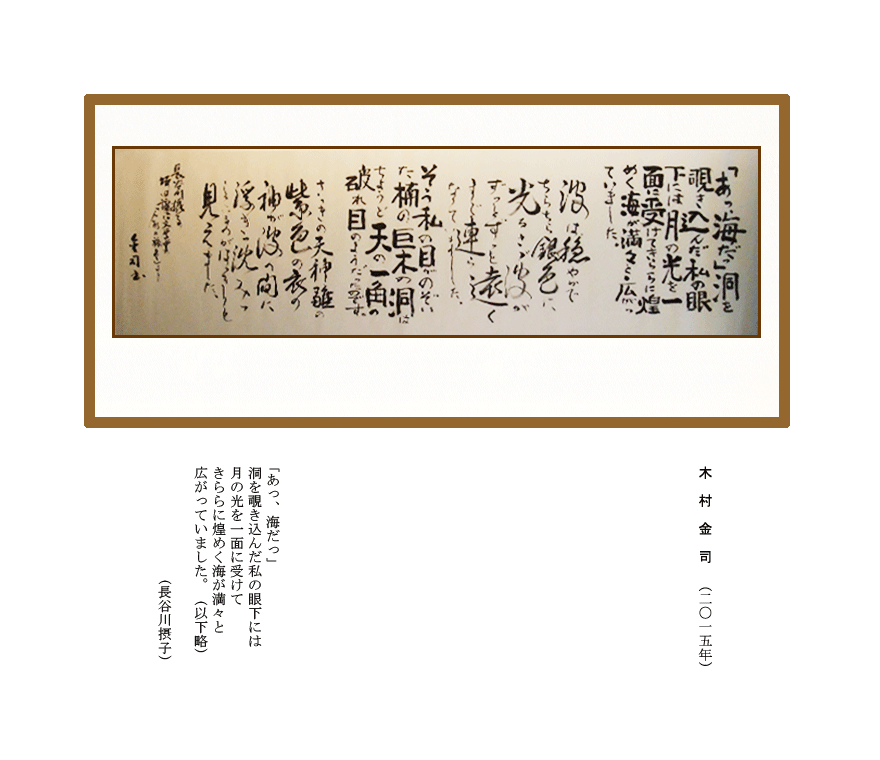 「あっ、海だっ」洞を
覗き込んだ私の眼
下には月の光を一
面に受けてきらら に煌
めく海が満々と広がっ
ていました。
波は穏やかで
ちらちら銀色に
光る。さざ波が
ずっとずっと遠く
まで連らへ
なっていました。
そう私の目がのぞい
た楠の巨木の洞は
ちょうど天の一角の
破れ目のようだったのです。
さっきの天神雛の
紫色の衣の
神が波の間に
浮きつ沈みつ
するのがはっきりと
見えました。
金司書
木村金司 (二〇一五年)
「あっ、海だっ」
洞を覗き込んだ私の眼下には
月の光を一面に受けて
きららに煌めく海が満々と
広がっていました。 (以下略)
(長谷川摂子)